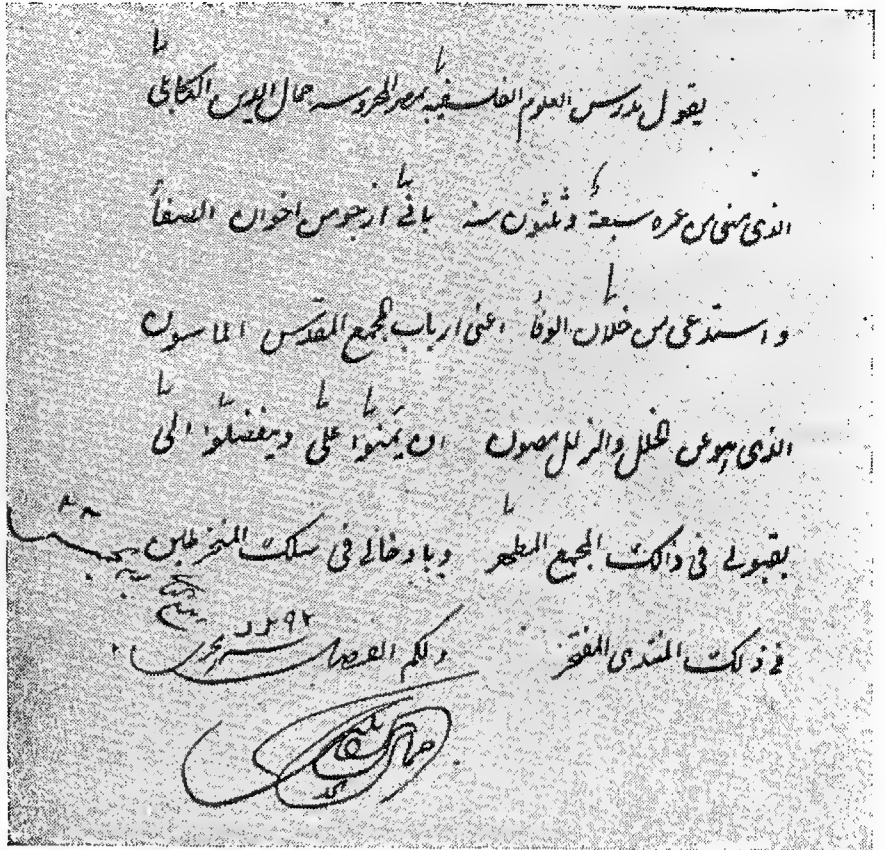 يقول مدرس العلوم الفلسفية بمصر المحروسه جمال الدين الكابلى
الذى مضى من عمره سبعة وثلثون سنه بانى ارجو من اخوان الصفا
واستدعى من خلان الوفا اعنى ارباب المجمع المقدس الماسون
الذى هو عن الخلل والزلل مصون ان يمنوا على ويتفضلوا الى
بقبولى فى ذلك المجمع المطهر وبادخالى فى سلك المنخرطين
فى ذلك المنتدى المفتخر ولكم الفضل
١٢٩٢
جمال الدين